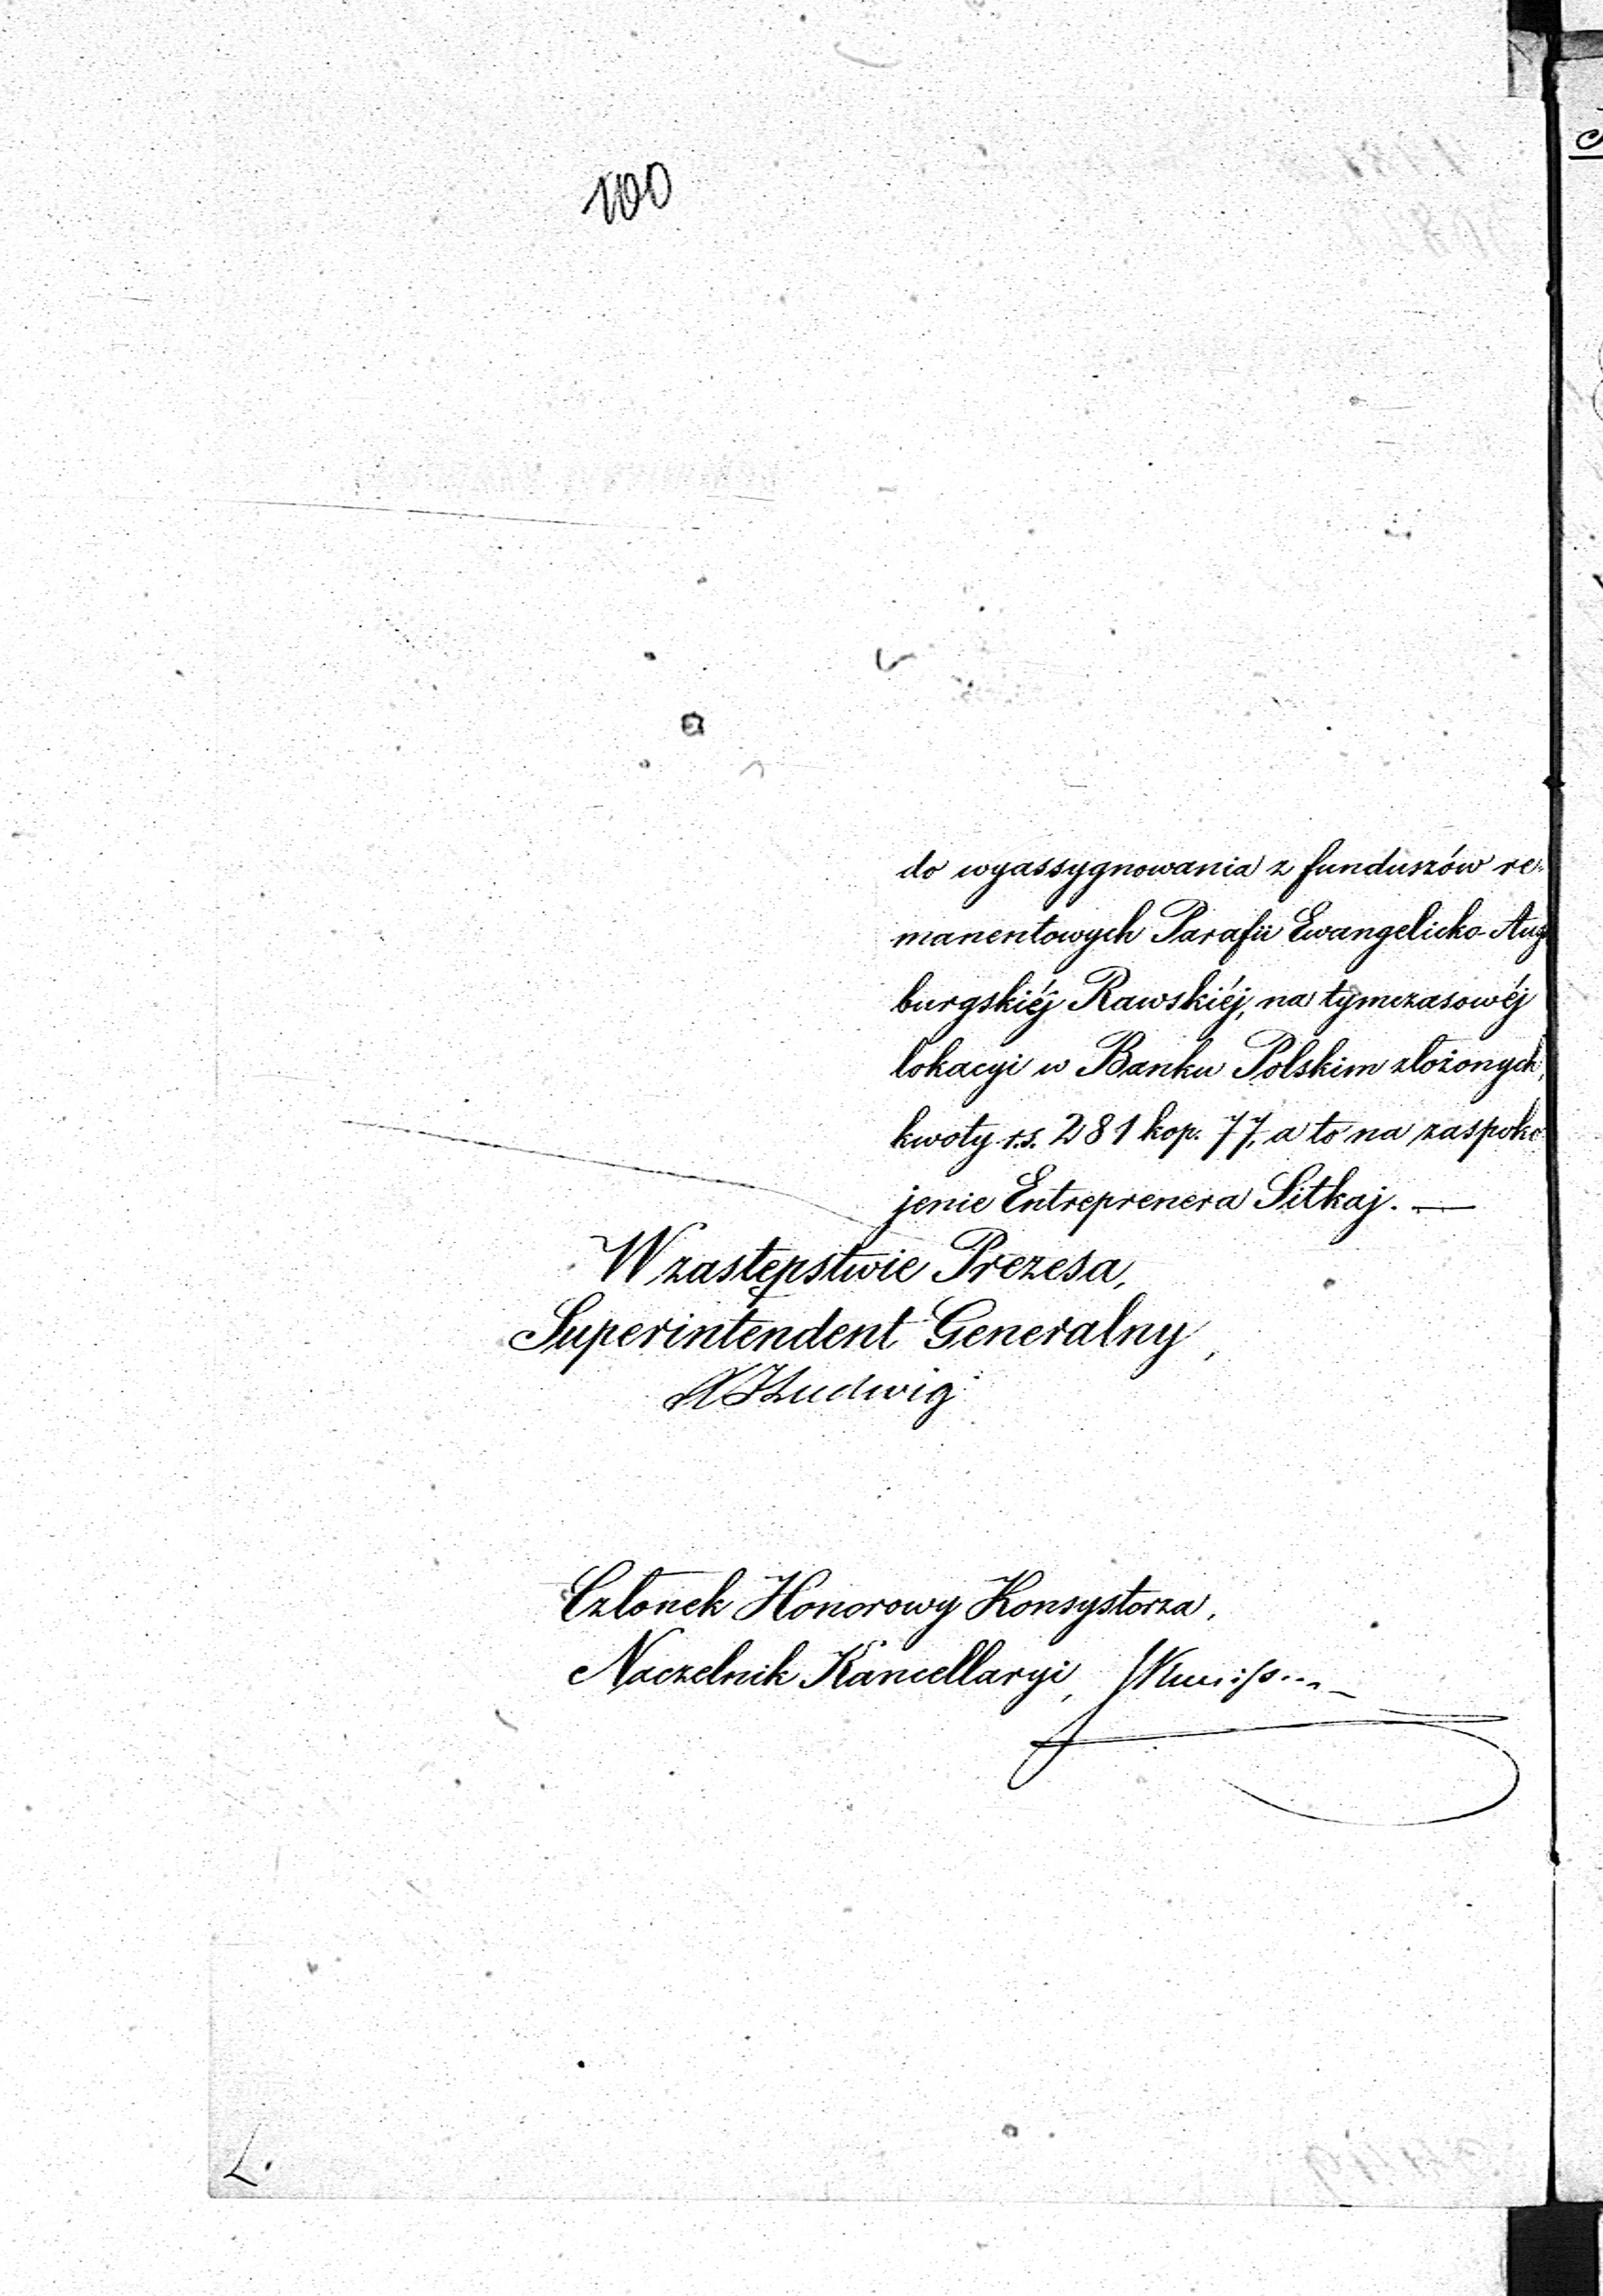 100
do wyassygnowania z funduszów re-
manentowych Parafii Ewangelicko-Aug
burgskiéj Rawskiéj, na tymczasowéj
lokacyi w Banku Polskim złożonych,
kwoty r.s. 281 kop. 77, a to na zaspoko
jenie Entreprenera Sitkaj. —
W zastępstwie Prezesa,
Superintendent Generalny,
Ludwig
Członek Honorowy Konsystorza,
Naczelnik Kancellaryi,
L.